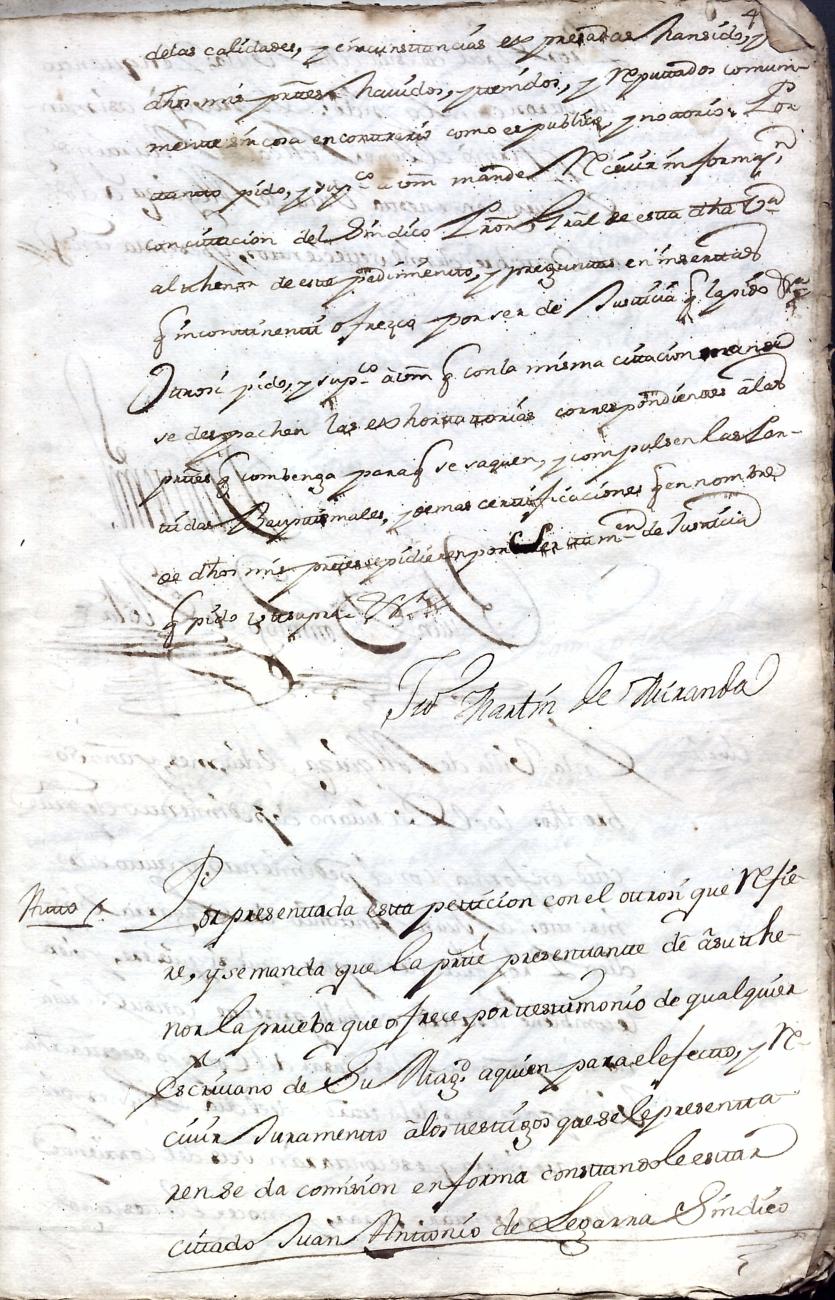 4
delas calidades, y circunstancias expresadas han sido, y
dhos mis partes havidos, y tenidos, y reputados comun-
mente sin cosa en contrario como es publico, y notorio: Por
tanto pido, y supco a Vm mande Recivir informazn
con citacion del Sindico Pror Gral de esta dha Va
al thenor de este pedimento, y preguntas en el insertas
q incontinenti ofrezco por ser de Justicia q la pido &ra
Otrosi pido, y supco a Vm q con la misma citacion mande
se despachen las exhortatorias correspondientes a las
partes q combenga para q se saquen, y compulsen las Par-
tidas Baptismales, y demas certificaciones q en nombre
de dhos mis partes se pidieren por ser tamen de Justicia
q pido ut supra &ra
Martin de Miranda
Auto
Por presentada esta peticion con el otrosi que refie-
re, y se manda que la parte presentante dé a su the-
nor la prueba que ofrece por testimonio de qualquier
Escrivano de Su Magd aquien para el efecto, y re-
civir Juramento a los testigos que se le presenta
ren se da comision en forma constandole estar
citado Juan Antonio de Legarra Sindico